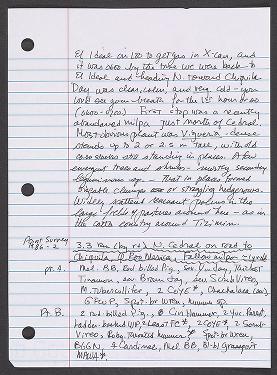 El Ideal on 180 to get gas in X-can, and
it was 0600 by the time we were back to
El Ideal and heading N. toward Chiquilá.
Day was clear, calm, and very cold - you
could see your breath for the 1st hour or so
(0600-0700). First stop was a recently
abandoned milpa just north of Cedral.
Most obvious plant was Viguiera - dense
stands up to 2 or 2.5 m tall, with old
corn stalks still standing in places. A few
emergent trees and
that in places formed
sizable clumps or straggling hedgerows.
Widely scattered remnant palms in the
large fields & pastures around here - as in
the cattle country around Tizimín.
Point Survey
1986-2
3.3 km (by rd) N. Cedral on road to
Chiquilá, Q. Roo, Mexico,
pt. A. Mel. BB, Red billed Pig., Sov. Vireo, Thicket
Tinamou, sev. Brown Jay, sev.
M. Tuberculifer, 2 COYE*, Chachalaca (sev.),
Spot-br Wren, humm sp.
Pt. B. 2 red billed Pig., Cin Hummer, 2 Yuc. Parrot,
ladder-backed WP, Least FC*, 2 COYE*, 2
Vireo, Ruby-throated hummer* Spot-br Wren,
BGGN, 4 Cardinal, Mel BB, Bl-bl Grassquit
MAWA*